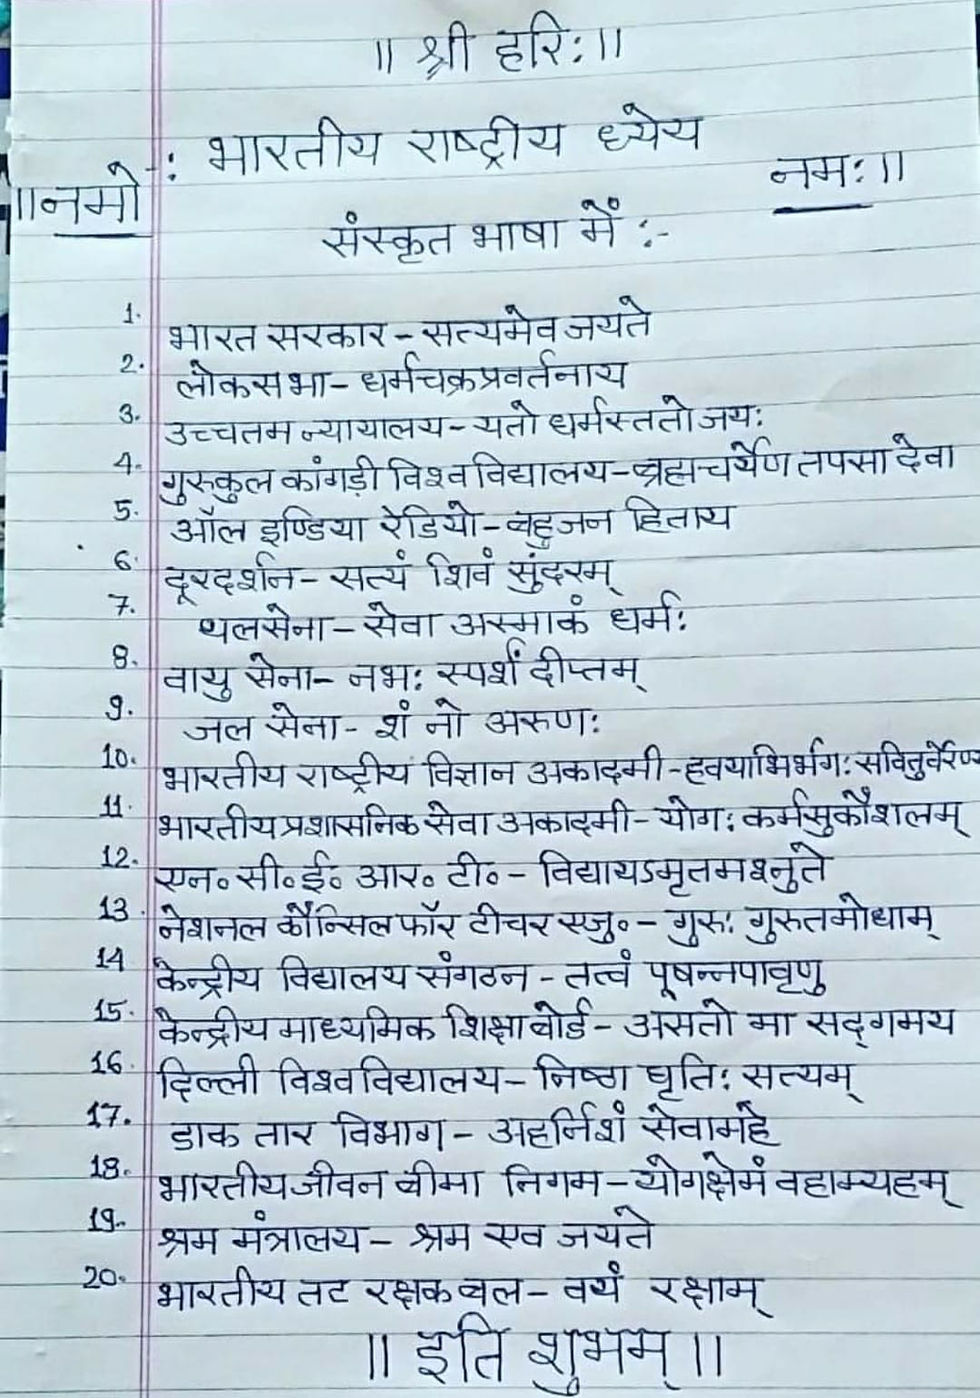 ॥ श्री हरि: ॥
: भारतीय राष्ट्रीय ध्येय
॥नमो नम: ॥
संस्कृत भाषा में :-
1. भारत सरकार - सत्यमेव जयते
2. लोकसभा - धर्मचक्रप्रवर्तनाय
3. उच्चतम न्यायालय - यतो धर्मस्ततो जय:
4. गुरुकुल कांगड़ी विश्वविद्यालय - ब्रह्मचर्येण तपसा देवा
5. ऑल इण्डिया रेडियो - बहुजन हिताय
6. दूरदर्शन - सत्यं शिवं सुंदरम्
7. थलसेना - सेवा अस्माकं धर्म:
8. वायु सेना - नभ: स्पर्शं दीप्तम्
9. जल सेना - शं नो अरुण:
10. भारतीय राष्ट्रीय विज्ञान अकादमी - हवयाभिर्भग: सवितुर्वरेण्य
11. भारतीय प्रशासनिक सेवा अकादमी - योग: कर्मसुकौशलम्
12. एन॰ सी॰ ई॰ आर॰ टी॰ - विद्यायऽमृतमश्नुते
13. नेशनल कौन्सिल फॉर टीचर एजु॰ - गुरु: गुरुतमोधाम्
14 केन्द्रीय विद्यालय संगठन - तत्वं पूषन्नपावृणु
15. केन्द्रीय माध्यमिक शिक्षा बोर्ड - असतो मा सद्गमय
16. दिल्ली विश्वविद्यालय - निष्ठा धृति: सत्यम्
17. डाक तार विभाग - अहर्निशं सेवामहे
18. भारतीय जीवन बीमा निगम - योगक्षेमं वहाम्यहम्
19. श्रम मंत्रालय - श्रम एव जयते
20. भारतीय तट रक्षक बल - वयं रक्षाम्
॥ इति शुभम् ॥